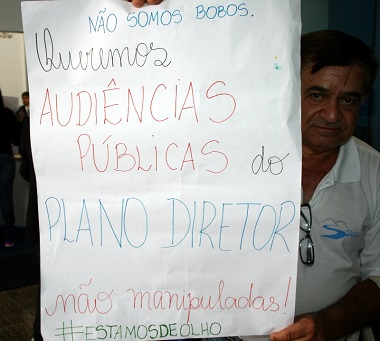 NÃO SOMOS BOBOS.
Queremos
AUDIÊNCIAS
PÚBLICAS do
PLANO DIRETOR
não manipuladas!
#ESTAMOSDEOLHO